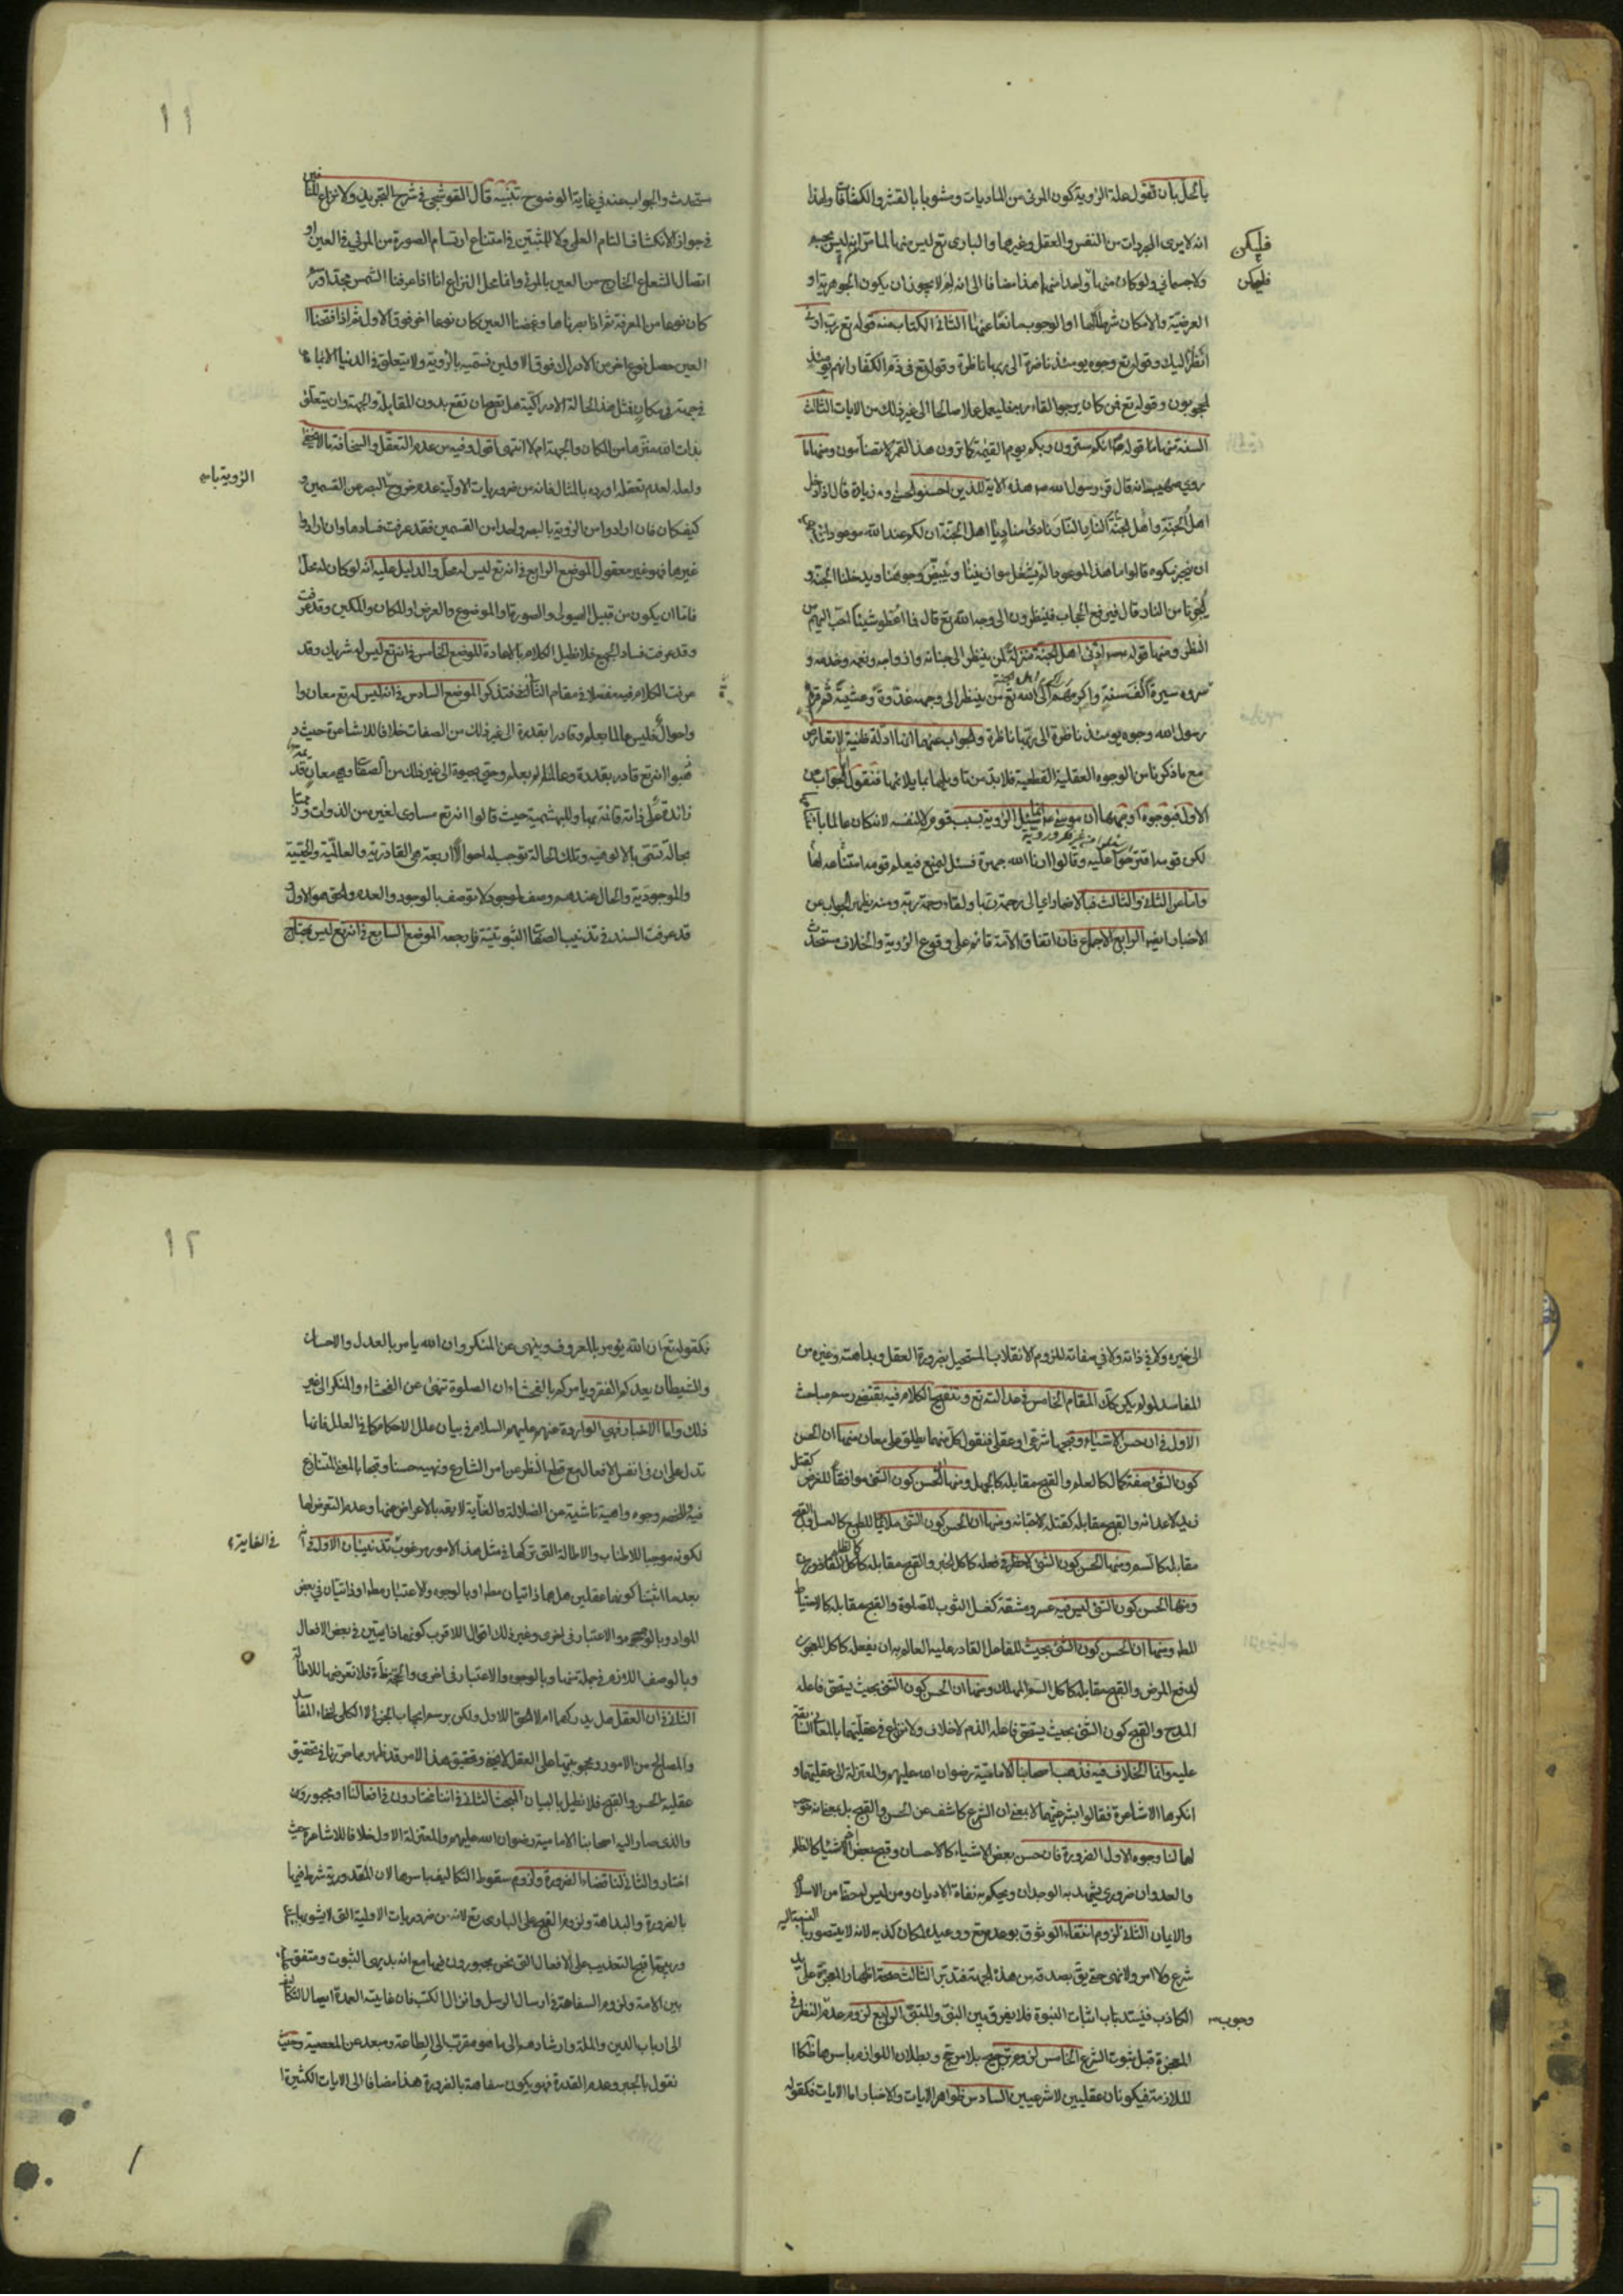 بالحل بان نقول علة الرؤية كون المرئى من الماديات ومشوبا بالقشر والكثافة ولهذا
انه لا يرى المجردات من النفس والعقل وغيرها والبارى تع ليس منها لما مر انه ليس بجسم
فليكن
ولا جسمانى ولو كان منها واحدا منهما هذا مضافا الى انه لم لا يجوز ان يكون الجوهرية او
فليمكن
العرضية والامكان شرطا لها او الوجوب مانعا عنها الثانى الكتاب منه قوله تع رب ارنى
انظر اليك وقوله تع وجوه يومئذ ناضرة الى ربها ناظرة وقوله تع فى ذم الكفار انهم يومئذ
لمحجوبون وقوله تع فمن كان يرجوا لقاء ربه فليعمل عملا صالحا الى غير ذلك من الايات الثالث
السنة منها ما قوله انكم سترون ربكم يوم القيمة كما ترون هذا القمر لا تضامون ومنها ما
روى صهيب انه قال قرء رسول الله هذه الاية للذين احسنوا الحسنى وزيادة قال اذا دخل
اهل الجنة الجنة واهل النار النار نادى مناد يا اهل الجنة ان لكم عند الله موعودا
ان ينجزكموه قالوا ما هذا الموعود الم يثقل موازيننا ويبيض وجوهنا ويدخلنا الجنة و
ينجينا من النار قال فيرفع الحجاب فينظرون الى وجه الله تع قال فما اعطوا شيئا احب اليهم من
النظر ومنها قوله ان اهل الجنة منزلة لمن ينظر الى جنانه وازواجه ونعمه وخدمه و
سروره مسيرة الف سنة واكرمهم الى الله تع من ينظر الى وجهه غدوة وعشية ثم قرء
رسول الله وجوه يومئذ ناظرة الى ربها ناظرة والجواب عنها انها ادلة ظنية لا تعارض
مع ما ذكرنا من الوجوه العقلية القطعية فلا بد من تاويلها بما يلائمها فنقول الجواب من
الاول فبوجوه اوجهها ان موسى لم يسئل الرؤية بسبب قومه لا لنفسه لانه كان عالما
لكن قومه اقترحوا عليه وقالوا ارنا الله جهرة فسئل ليمنع فيعلم قومه امتناعه لها
واما من الثانى والثالث فبالاضمار اعنى الى رحمة ربها ولقاء رحمة ربه ومنه يظهر الجواب عن
الاخبار ايضا الرابع الاجماع فان اتفاق الامة قائم على وقوع الرؤية والخلاف مستحدث
١١
مستحدث والجواب عنه فى غاية الوضوح تنبيه قال القوشجى فى شرح التجريد ولا نزاع للنافين
فى جواز الانكشاف التام العلمى ولا للمثبتين فى امتناع ارتسام الصورة من المرئى فى العين او
اتصال الشعاع الخارج من العين بالمرئى وانما محل النزاع انا اذا عرفنا الشمس بحد او رسم
كان نوعا من المعرفة ثم اذا ابصرناها وغمضنا العين كان نوعا اخر فوق الاول ثم اذا فتحنا
العين حصل نوع اخر من الادراك فوق الاولين نسميه بالرؤية ولا يتعلق فى الدنيا الا بما
فى جهة ومكان فمثل هذه الحالة الادراكية هل تصح ان تقع بدون المقابلة والجهة وان يتعلق
بذات الله منزها من المكان والجهة ام لا انتهى اقول وفيه من عدم التعقل والسخافة ما لا يخفى
ولعله لعدم تعقله اورده بالمثال فانه من ضروريات الاولية عدم خروج البصر عن القسمين و
كيف كان فان ارادوا من الرؤية بالبصر واحدا من القسمين فقد عرفت فسادها وان ارادوا
الرؤية باسم
غيرها فهو غير معقول الموضع الرابع فى انه تع ليس له محل والدليل عليه انه لو كان له محل
فاما ان يكون من قبيل الهيولى والصورة او الموضوع والعرض او المكان والمتمكن وقد عرفت
وقد عرفت فساد الجميع فلا نطيل الكلام بالاعادة الموضع الخامس فى انه تع ليس له شريك وقد
عرفت الكلام فيه مفصلا فى مقام الثالث فتذكر الموضع السادس فى انه ليس له تع معان و
واحوال فليس عالما بعلم وقادرا بقدرة الى غير ذلك من الصفات خلافا للاشاعرة حيث
ذهبوا انه تع قادر بقدرة وعالم بعلم وحى بحيوة الى غير ذلك من الصفات وهى معان قديمة
زائدة على ذاته قائمة بها وللبهشمية حيث قالوا انه تع مساوى لغيره من الذوات
بحالة تسمى بالالوهية وتلك الحالة توجب له احوالا اربعة هى القادرية والعالمية والحيية
والموجودية والحال عندهم وصف لموجود لا توصف بالوجود والعدم والحق هو الاول و
قد عرفت السند فى تذنيب الصفات الثبوتية فارجعه الموضع السابع فى انه تع ليس بمحتاج
الى غيره لا فى ذاته ولا فى صفاته للزوم الانقلاب المستحيل بضرورة العقل وبداهته وغيره من
المفاسد لو لم يكن كك المقام الخامس فى عدالته تع وتنقيح الكلام فيه يقتضى رسم مباحث
الاول فى ان حسن الاشياء وقبحها شرعى او عقلى فنقول كل منهما يطلق على معان منها ان الحسن
كون الشئ صفة كمال كالعلم والقبح مقابله كالجهل ومنها الحسن كون الشئ موافقا للغرض كقتل
زيد لاعدائه والقبح مقابله كقتله لاحبائه ومنها ان الحسن كون الشئ ملائما للطبع كالعسل والقبح
مقابله كالسم ومنها الحسن كون الشئ لا حظر فى فعله كاكل الخبز والقبح مقابله كاكل القاذورات
ومنها الحسن كون الشئ ليس فيه عسر ومشقة كغسل الثوب للصلوة والقبح مقابله كالاحتياط
المط ومنها ان الحسن كون الشئ بحيث للفاعل القادر عليه العالم به ان يفعله كاكل المعجون
لدفع المرض والقبح مقابله كاكل السم المهلك ومنها ان الحسن كون الشئ بحيث يستحق فاعله
المدح والقبح كون الشئ بحيث يستحق فاعله الذم لا خلاف ولا نزاع فى عقليتهما بالمعانى السابقة
عليه وانما الخلاف فيه فذهب اصحابنا الامامية رضوان الله عليهم والمعتزلة الى عقليتهما و
انكرها الاشاعرة فقالوا بشرعيتهما لا بمعنى ان الشرع كاشف عن الحسن والقبح بل بمعنى انه
لها لنا وجوه الاول الضرورة فان حسن بعض الاشياء كالاحسان وقبح بعض الاشياء كالظلم
والعدوان ضرورى يشهد به الوجدان ويحكم به نفاة الاديان ومن ليس له حظ من الاسلام
والايمان الثانى لزوم انتفاء الوثوق بوعده تع ووعيده لامكان كذبه لانه لا يتصور بالنسبة اليه
شرع ولا امر ولا نهى حتى يق بصدقه من هذه الجهة فتدبر الثالث صحة اظهار المعجزة على يد
الكاذب فينسد باب اثبات النبوة فلا يفرق بين النبى والمتنبى الرابع لزوم عدم النظر فى
وجوب
المعجزة قبل ثبوت الشرع الخامس لزوم ترجيح بلا مرجح وبطلان اللوازم باسرها كا
للملازمة فيكونان عقليين لا شرعيين السادس ظواهر الايات والاخبار اما الايات فكقوله
١٢
فكقوله تع ان الله يؤمر بالمعروف وينهى عن المنكر وان الله يامر بالعدل والاحسان
والشيطان يعدكم الفقر ويامركم بالفحشاء ان الصلوة تنهى عن الفحشاء والمنكر الى غير
ذلك واما الاخبار فهى الواردة عنهم عليهم السلام فى بيان علل الاحكام كما فى العلل فانها
تدل على ان فى انفس الافعال مع قطع النظر عن امر الشارع ونهيه حسنا وقبحا بالمعنى المتنازع
فيه وللخصم وجوه واهية ناشية من الضلالة والغاية لا يعبه بالاعراض عنها وعدم التعرض لها
لكونه موجبا للاطناب والاطالة التى تركها فى مثل هذا الامور مرغوب تذنيبان الاول فى انه
فى الغاية
بعد ما اثبتنا كونهما عقليين هل هما ذاتيان مط او بالوجوه والاعتبار مط او ذاتيان فى بعض
المواد وبالوجوه والاعتبار فى اخرى وغير ذلك اقوال اقرب كونهما ذاتيين فى بعض الافعال
وبالوصف اللازم فى جملة منها وبالوجوه والاعتبار فى اخرى والحجة ظاهرة فلا نتعرضها للاطالة
الثانى فى ان العقل هل يدركهما ام لا الحق الاول ولكن برسم ايجاب الجزئى لا الكلى لخفاء المفاسد
والمصالح من الامور ومحجوبيتها على العقل لا يخفى وتحقيق هذا الامر قد ظهر مما حررنا فى تحقيق
عقلية الحسن والقبح فلا نطيل بالبيان المبحث الثانى فى اننا مختارون فى افعالنا او مجبورون
والذى صار اليه اصحابنا الامامية رضوان الله عليهم والمعتزلة الاول خلافا للاشاعرة حيث
اختاروا الثانى لنا قضاء الضرورة ولزوم سقوط التكاليف باسرها لان المقدورية شرط فيها
بالضرورة والبداهة ولزوم القبح على البارى تع لانه من ضروريات الاولية التى لا يشوبها
قبح التعذيب على الافعال التى نحن مجبورون فيها مع انه بديهى الثبوت ومتفق
بين الامة ولزوم السفاهة فى ارسال الرسل وانزال الكتب فان غايته العمدة ايصال التكاليف
الى ارباب الدين والملة وارشادهم الى ما هو مقرب الى الطاعة ومبعد عن المعصية وحيث
نقول بالجبر وعدم القدرة فهو يكون سفاهة بالضرورة هذا مضافا الى الايات الكثيرة